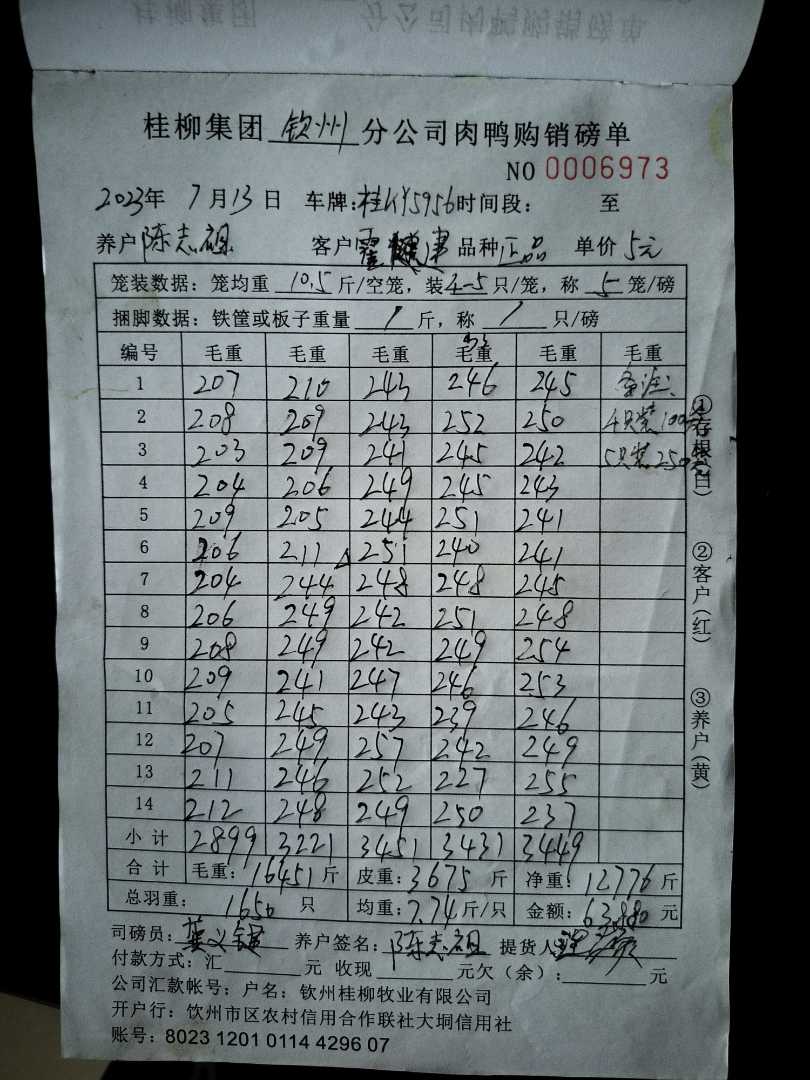 桂柳集团 钦州 分公司肉鸭购销磅单
NO 0006973
2023年 7月13日 车牌:桂KY5956 时间段: 至
养户 陈志祖 客户 品种 正品 单价 5元
笼装数据: 笼均重 10.5 斤/空笼, 装 4-5 只/笼, 称 5 笼/磅
捆脚数据: 铁筐或板子重量 / 斤, 称 / 只/磅
编号 毛重 毛重 毛重 毛重 毛重 毛重
1 207 210 243 246 245 备注:
2 208 209 243 252 250 4只装100
3 203 209 241 245 242 5只装250
4 204 206 249 245 243
5 209 205 244 251 241
6 206 211 251 240 241
7 204 244 248 248 245
8 206 249 242 251 248
9 208 249 242 249 254
10 209 241 247 246 253
11 205 245 243 239 246
12 207 249 257 242 249
13 211 246 252 227 255
14 212 248 249 250 237
小计 2899 3221 3451 3431 3449
合计 毛重: 16451 斤 皮重: 3675 斤 净重: 12776 斤
总羽重: 1650 只 均重: 7.74 斤/只 金额: 63880 元
司磅员: 养户签名: 陈志祖 提货人
付款方式: 汇 元 收现 元欠(余): 元
公司汇款帐号: 户名: 钦州桂柳牧业有限公司
开户行: 钦州市区农村信用合作联社大垌信用社
账号: 8023 1201 0114 4296 07
①存根(白)
②客户(红)
③养户(黄)